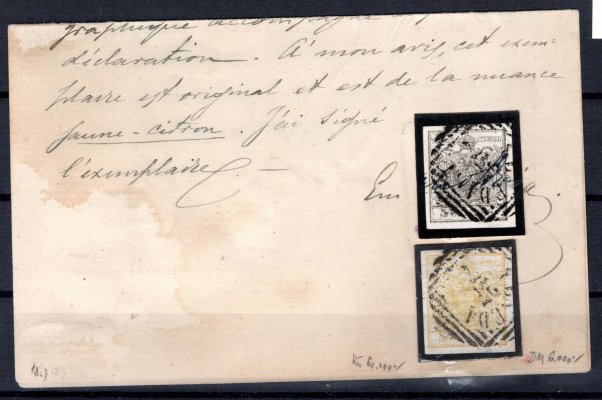 graphique accompagne
déclaration. À mon avis, cet exem-
plaire est original et est de la nuance
jaune-citron. J'ai signé
l'exemplaire. —
Em
Kčs 60.000,-
DM 6.000,-